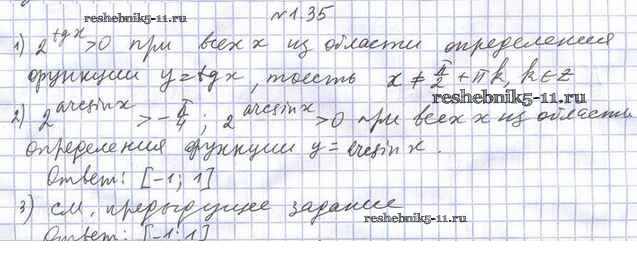 №1.35
reshebnik5-11.ru
1) 2^tgx >0 при всех x из области определения
функции y=tgx, тоесть x ≠ π/2 + πk, k∈z
reshebnik5-11.ru
2) 2^arcsinx > -π/4 ; 2^arcsinx >0 при всех x из области
определения функции y= arcsinx.
Ответ: [-1; 1]
3) см. предыдущее задание
reshebnik5-11.ru
Ответ: [-1; 1]